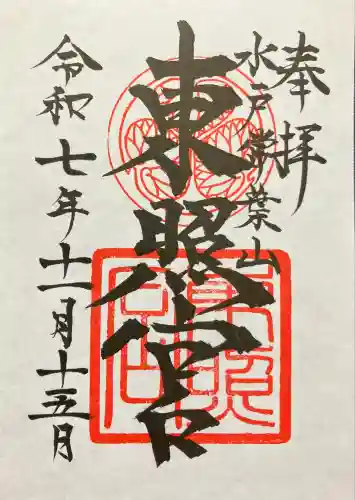 奉拝
水戸常葉山
東照宮
令和七年十一月十五月
東照宮